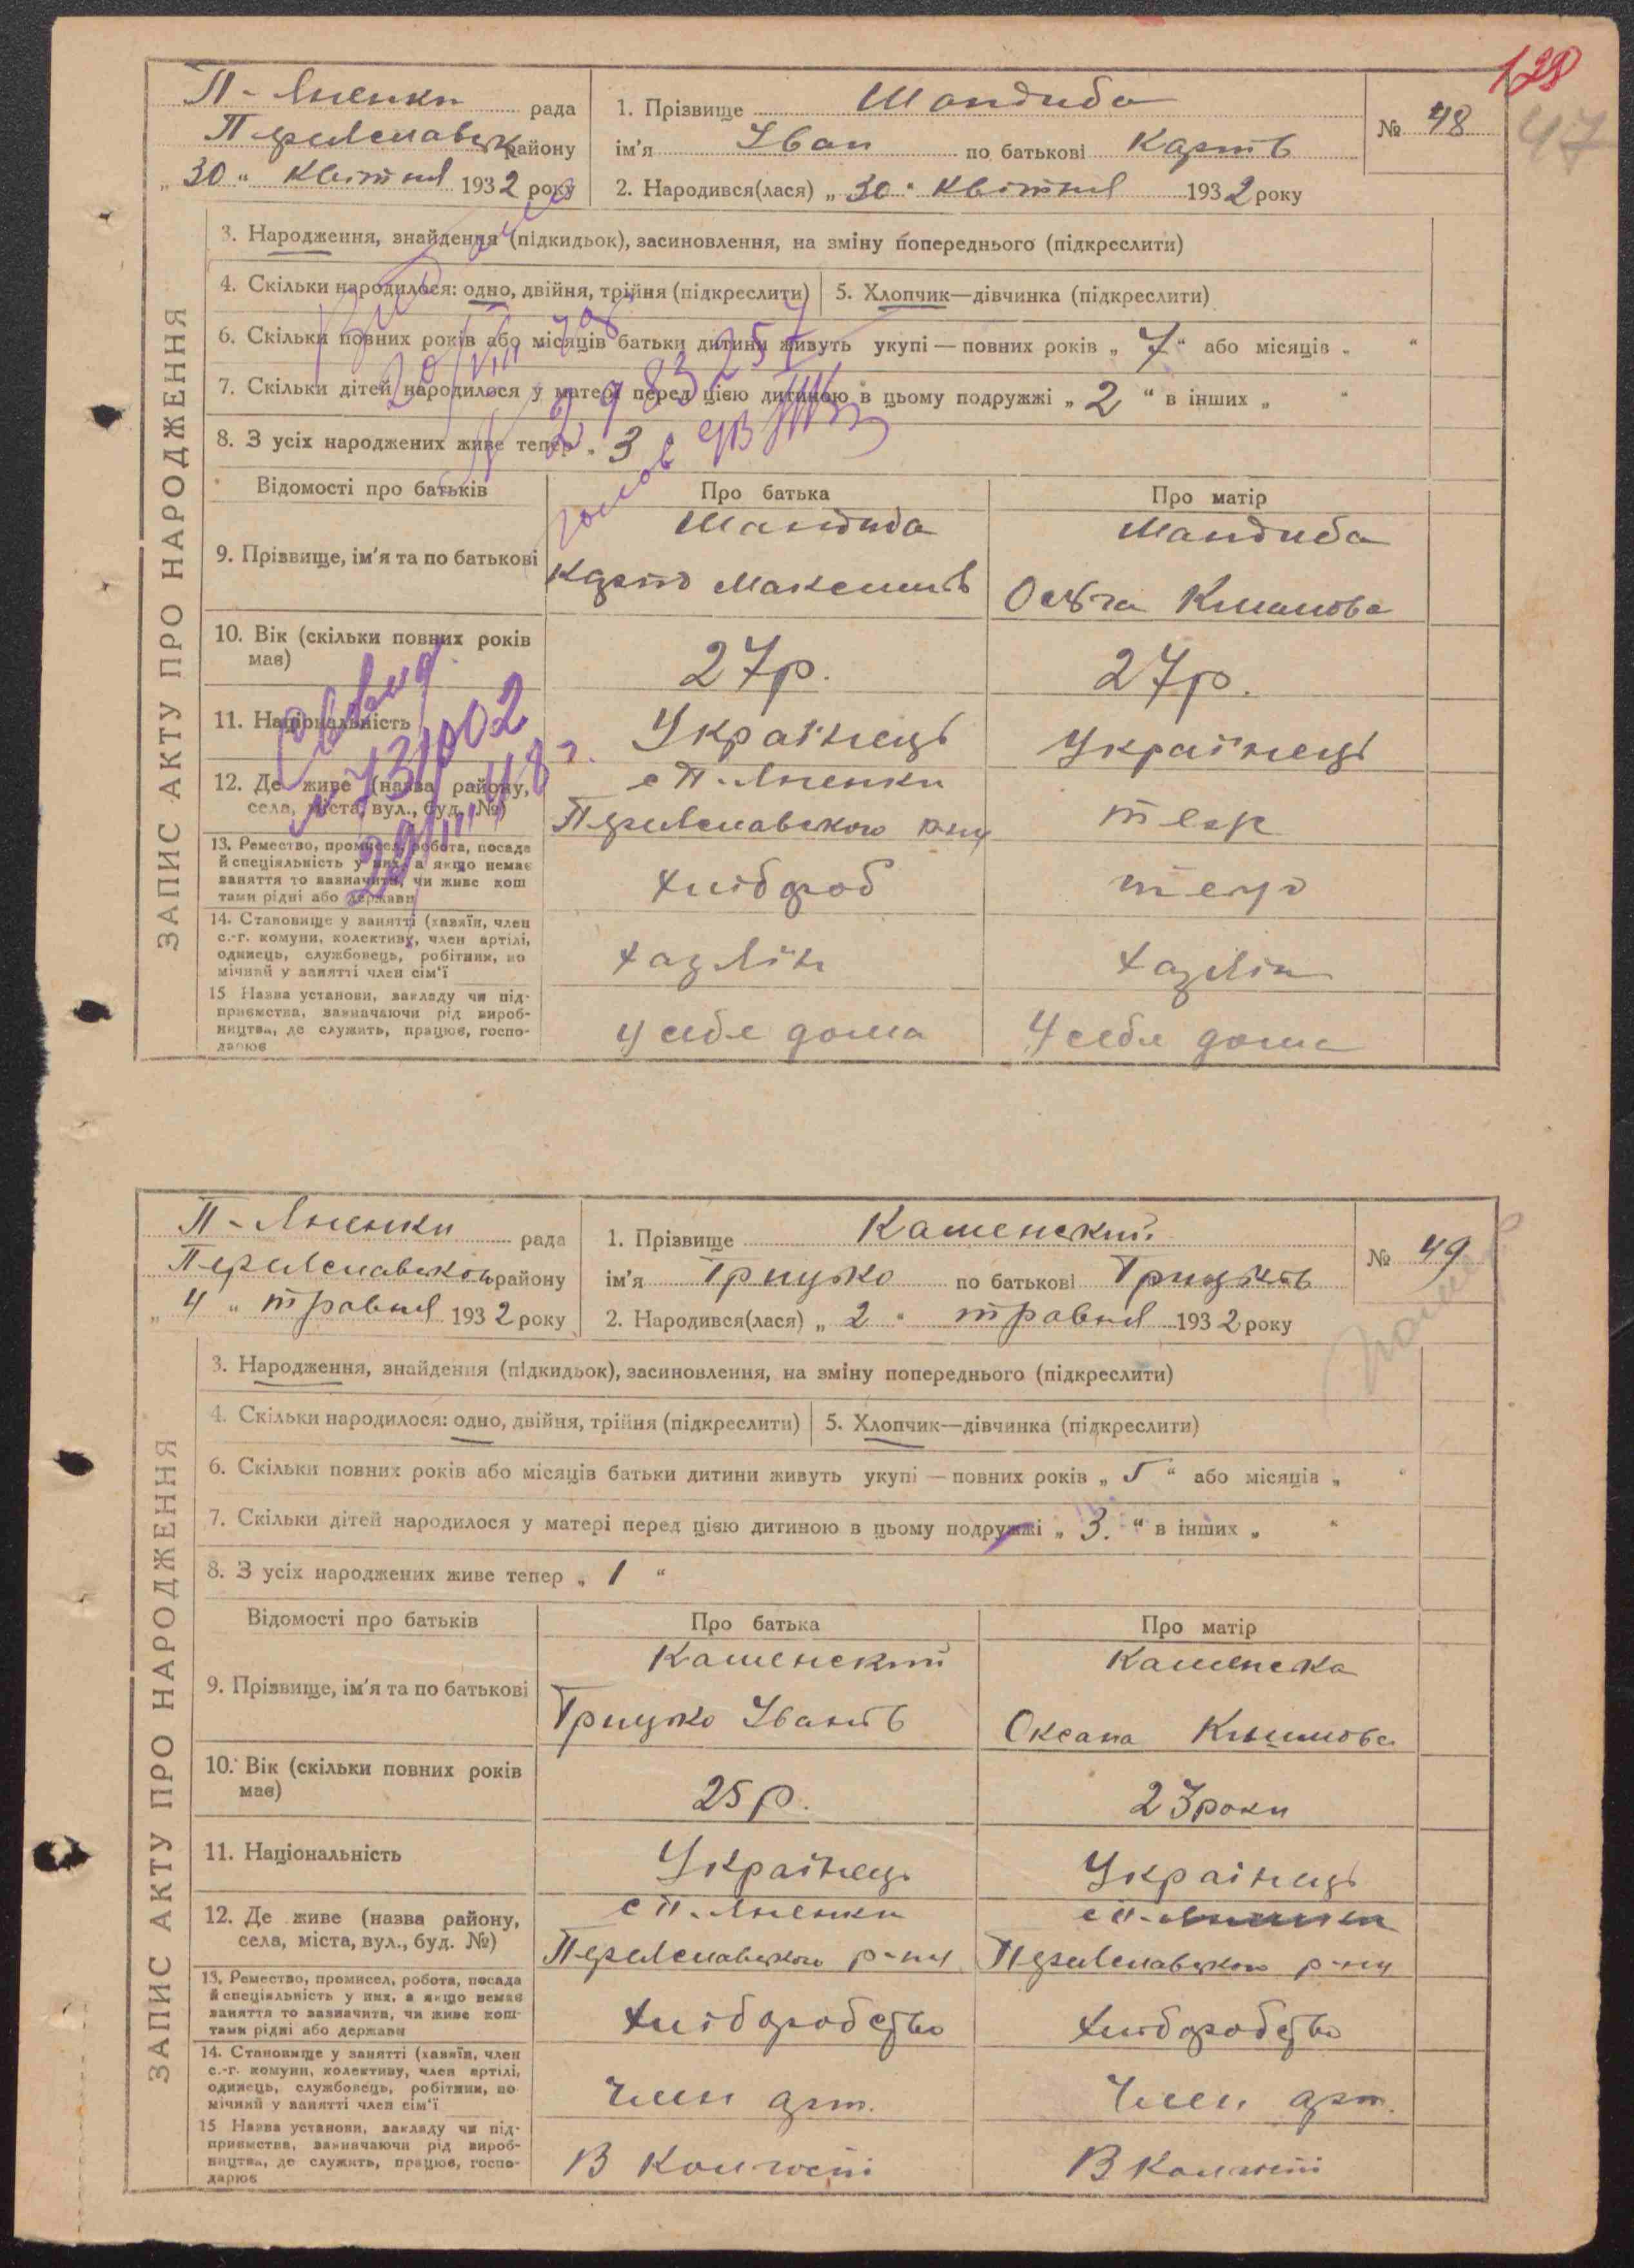 128
47
П-Яненки рада
Переяславськ району
„30“ Квітня 1932 року
1. Прізвище Шандиба
ім'я Іван по батькові Карпів
№ 48
2. Народився(лася) „30“ Квітня 1932 року
ЗАПИС АКТУ ПРО НАРОДЖЕННЯ
3. Народження, знайдення (підкидьок), засиновлення, на зміну попереднього (підкреслити)
4. Скільки народилося: одно, двійня, трійня (підкреслити)
5. Хлопчик—дівчинка (підкреслити)
6. Скільки повних років або місяців батьки дитини живуть укупі — повних років „7“ або місяців „ “
7. Скільки дітей народилося у матері перед цією дитиною в цьому подружжі „2“ в інших „ “
8. З усіх народжених живе тепер „3
Відомості про батьків
Про батька
Про матір
9. Прізвище, ім'я та по батькові
Шандиба
Карпо Максимів
Шандиба
Климова
10. Вік (скільки повних років
має)
27р.
27р.
11. Національність
Українець
Українець
12. Де живе (назва району,
села, міста, вул., буд. №)
с П-Яненки
Переяславского р-ну
13. Ремество, промисел, робота, посада
й спеціяльність у них, а якщо немає
заняття то зазначити, чи живе кош
тами рідні або держави
хлібороб
14. Становище у занятті (хазяїн, член
с.-г. комуни, колективу, член артілі,
одинець, службовець, робітник, по
мічний у занятті член сім'ї
хазяїн
хазяїн
15 Назва установи, закладу чи під-
приємства, зазначаючи рід вироб-
ництва, де служить, працює, госпо-
дарює
у себе дома
у себе дома
П-Яненки рада
Переяславского району
„4“ травня 1932 року
1. Прізвище Каменский
ім'я Грицко по батькові Грицків
№ 49
2. Народився(лася) „2“ травня 1932 року
ЗАПИС АКТУ ПРО НАРОДЖЕННЯ
3. Народження, знайдення (підкидьок), засиновлення, на зміну попереднього (підкреслити)
4. Скільки народилося: одно, двійня, трійня (підкреслити)
5. Хлопчик—дівчинка (підкреслити)
6. Скільки повних років або місяців батьки дитини живуть укупі — повних років „5“ або місяців „ “
7. Скільки дітей народилося у матері перед цією дитиною в цьому подружжі „3.“ в інших „ “
8. З усіх народжених живе тепер „1“
Відомості про батьків
Про батька
Про матір
9. Прізвище, ім'я та по батькові
Каменский
Грицко Іванів
Каменска
Оксана Климова
10. Вік (скільки повних років
має)
25р.
23роки
11. Національність
Українець
Українець
12. Де живе (назва району,
села, міста, вул., буд. №)
с П-Яненки
Переяславского р-ну
с П-Яненки
Переяславского р-ну
13. Ремество, промисел, робота, посада
й спеціяльність у них, а якщо немає
заняття то зазначити, чи живе кош-
тами рідні або держави
хліборобство
хліборобство
14. Становище у занятті (хазяїн, член
с.-г. комуни, колективу, член артілі,
одинець, службовець, робітник, по
мічний у занятті член сім'ї
Член арт.
Член арт.
15 Назва установи, закладу чи під-
приємства, зазначаючи рід вироб-
ництва, де служить, працює, госпо-
дарює
В Колгоспі
В Колгоспі